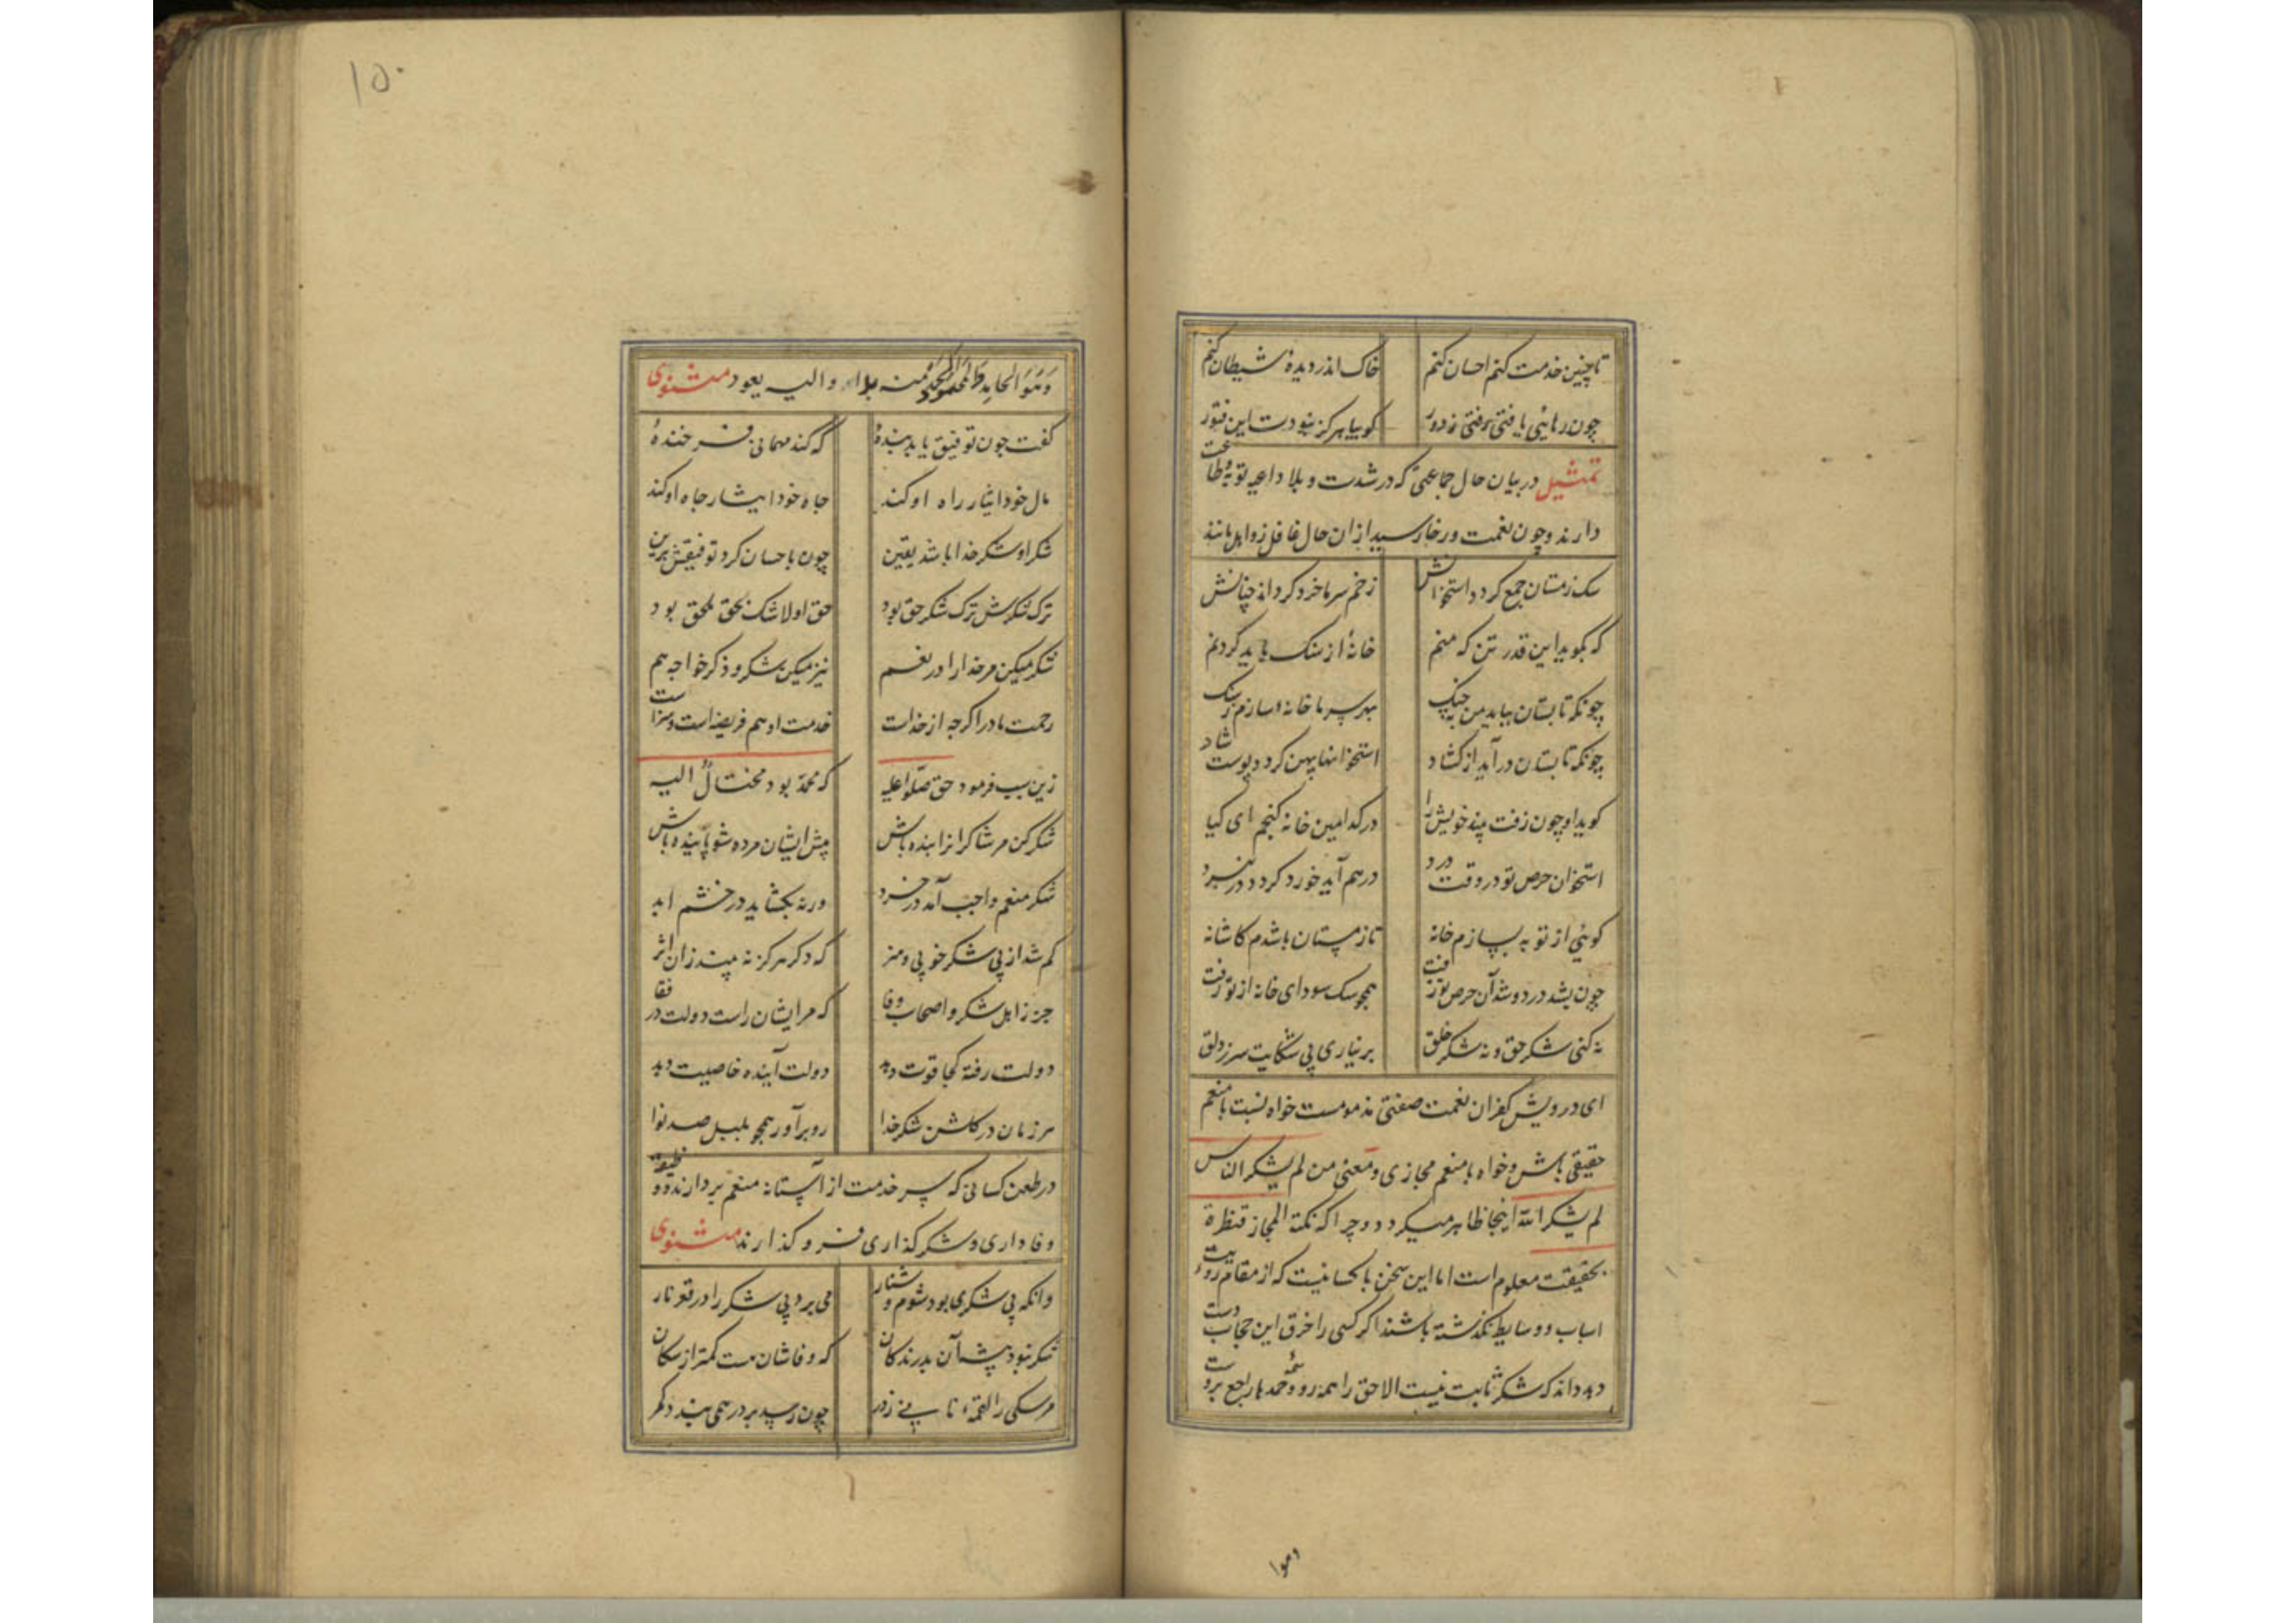 تا چنین خدمت کنم احسان کنم خاک اندر دیدهٔ شیطان کنم
چون رهائی یافتی رفتی ز دور گوییا هرگز نبودت این فتور
تمثیل در بیان حال جماعتی که در شدت و بلا داعیه توبه و طاعت
دارند و چون نعمت و رخا رسید ازان حال غافل و ذاهل مانند
سک زمستان جمع کردد استخوانش زخم سرما خرد کرداند چنانش
که بگوید این قدر تن که منم خانهٔ از سنک باید کردنم
چونکه تابستان بیاید من به چنک بهر سرما خانهٔ سازم ز سنک
چونکه تابستان در آید از کشاد استخوانها پهن کردد پوست شاد
کوید او چون زفت بیند خویش را در کدامین خانه کنجم ای کیا
استخوان حرص تو در وقت درد درهم آید خورد کردد در نبرد
کوئی از توبه بسازم خانه تا زمستان باشدم کاشانه
چون بشد درد و شد آن حرص تو زفت همچو سک سودای خانه از تو رفت
نه کنی شکر حق و نه شکر خلق بر نیاری بی شکایت سر ز دلق
ای درویش کفران نعمت صفتی مذمومست خواه نسبت با منعم
حقیقی باش و خواه با منعم مجازی و معنی من لم یشکر الناس
لم یشکر الله اینجا ظاهر میکردد و چرا که نکتة المجاز قنطرة
بحقیقت معلوم است اما این سخن با کسانیست که از مقام رویت
اسباب و وسایط نکذشته باشند اکر کسی را خرق این حجاب دست
دهد داند که شکر ثابت نیست الا حق را همه رو و همه حمدها راجع بروست
وهوا
۱۵۰
وهو الحامد والمحمود منه بدا و الیه یعود مثنوی
کفت چون توفیق یابد بندهٔ که کند مهمانی فرخندهٔ
مال خود ایثار راه او کند جاه خود ایثار جاه او کند
شکر او شکر خدا باشد یقین چون باحسان کرد توفیقش قرین
ترک شکرش ترک شکر حق بود حق او لا شک بحق ملحق بود
شکر میکن مر خدا را در نعم نیز میکن شکر و ذکر خواجه هم
رحمت مادر اکرچه از خداست خدمت او هم فریضه است و سزاست
زین سبب فرمود حق صلوا علیه که محمد بود محتال الیه
شکر کن مر شاکرانرا بنده باش پیش ایشان مرده شو پاینده باش
شکر منعم واجب آمد در خرد ورنه بکشاید در خشم ابد
کم شد از بی شکر خوبی و هنر که دکر هرکز نه بیند زان اثر
جز ز اهل شکر و اصحاب وفا که مر ایشان راست دولت در قفا
دولت رفته کجا قوت دهد دولت آینده خاصیت دهد
هر زمان در کلشن شکر خدا رو بر آور همچو بلبل صد نوا
در طعن کسانی که سر خدمت از آستانه منعم بردارند و وظیفه
وفاداری و شکر کذاری فرو کذارند مثنوی
وانکه بی شکری بود شوم و شنار می برد بی شکر را در قعر نار
شکر نبود پیشه آن بدرندکان که وفاشان هست کمتر از سکان
مر سکی را لقمهٔ نانی ز در چون رسید بر در همی بندد کمر